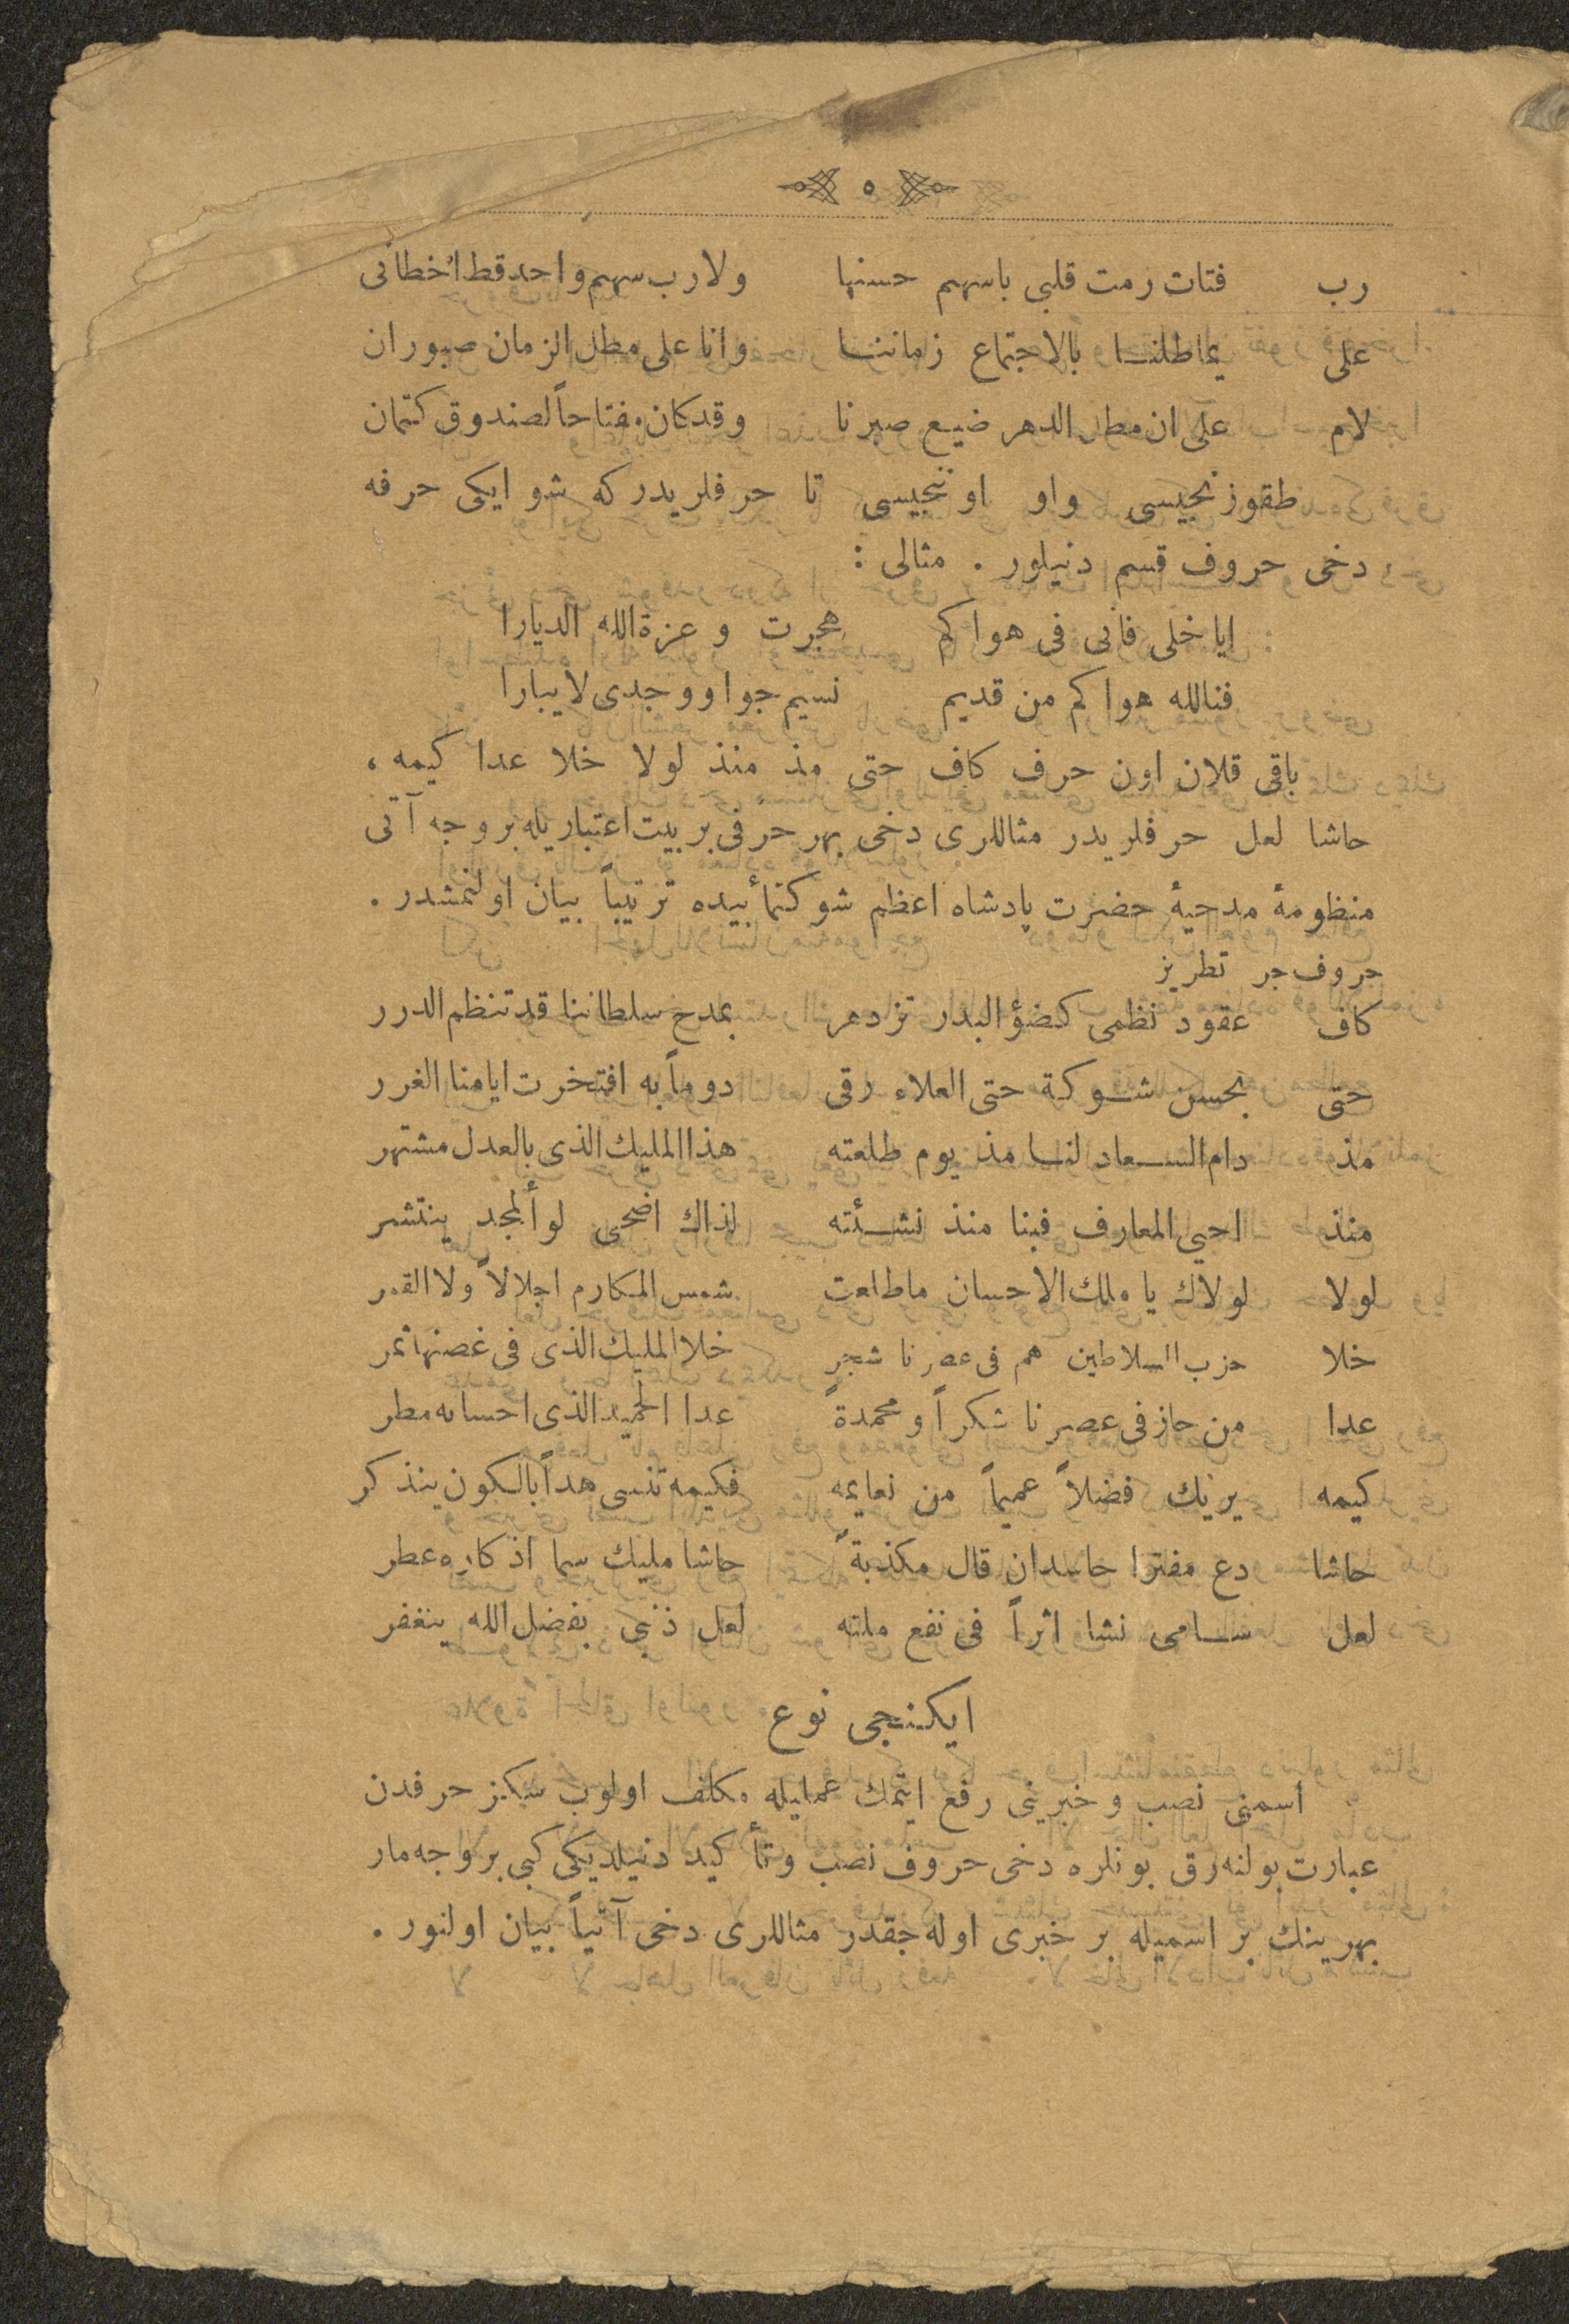 ٥
رب فتات رمت قلبی باسهم حسنها ولارب سهم واحد قط اخطانی
علی یماطلنا بالاجتماع زماننا وانا علی مطل الزمان صبوران
لام علی ان مطل الدهر ضیع صبرنا وقد کان مفتاحاً لصندوق کتمان
طقوزنجیسی واو اوننجیسی تا حرفلریدر که شو ایکی حرفه
دخی حروف قسم دنیلور . مثالی :
ایا خلی فانی فی هواکم هجرت و عزةالله الدیارا
فتالله هواکم من قدیم نسیم جوا ووجدی لایبارا
باقی قلان اون حرف کاف حتی مذ منذ لولا خلا عدا کیمه ،
حاشا لعل حرفلریدر مثاللری دخی بهر حرفی بر بیت اعتباریله بروجه آتی
منظومهٔ مدحیهٔ حضرت پادشاه اعظم شوکتمأبیده ترتیباً بیان اولنمشدر .
حروف جر تطریز
کاف عقود نظمی کضؤ البدر تزدهر بمدح سلطاننا قد تنظم الدرر
حتی بحسن شوکة حتی العلاء رقی دوماً به افتخرت ایامنا الغرر
مذ دام السعاد لنا مذ یوم طلعته هذا الملیك الذی بالعدل مشتهر
منذ احیی المعارف فینا منذ نشئته لذاك اضحی لوأ لمجد ینتشر
لولا لولاك یا ملك الاحسان ماطلعت شمس المکارم اجلالاً ولا القمر
خلا حزب السلاطین هم فی عصرنا شجر خلا الملیك الذی فی غصنها ثمر
عدا من حاز فی عصرنا شکراً ومحمدةً عدا الحمید الذی احسانه مطر
کیمه یریك فضلاً عمیماً من نعایمه فکیمه تنسی هداً بالکون ینذکر
حاشا دع مفترا حاسدان قال مکذبةً حاشا ملیك سما اذکاره عطر
لعل سامی نشا اثراً فی نفع ملته لعل ذنبی بفضل الله ینغفر
ایکنجی نوع
اسمنی نصب و خبرینی رفع ایتمك عملیله مکلف اولوب سکیز حرفدن
عبارت بولنه رق بونلره دخی حروف نصب و تأکید دنیلدیکی کبی بروجه مار
بهرینك بر اسمیله بر خبری اوله جقدر مثاللری دخی آتیاً بیان اولنور .